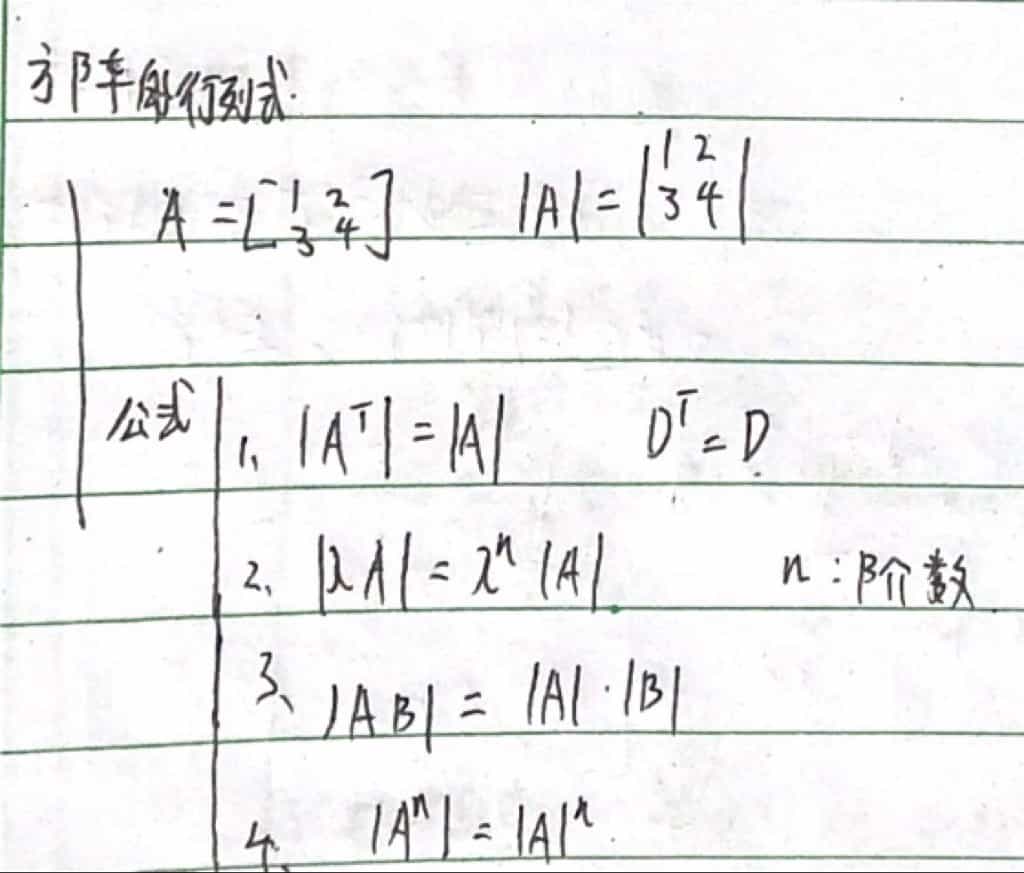 方阵的行列式.
A = [1 2
3 4] |A| = |1 2
3 4|
公式
1、|Aᵀ| = |A| Dᵀ = D
2、|λA| = λⁿ |A| n:阶数
3、|AB| = |A|·|B|
4、|Aⁿ| = |A|ⁿ.